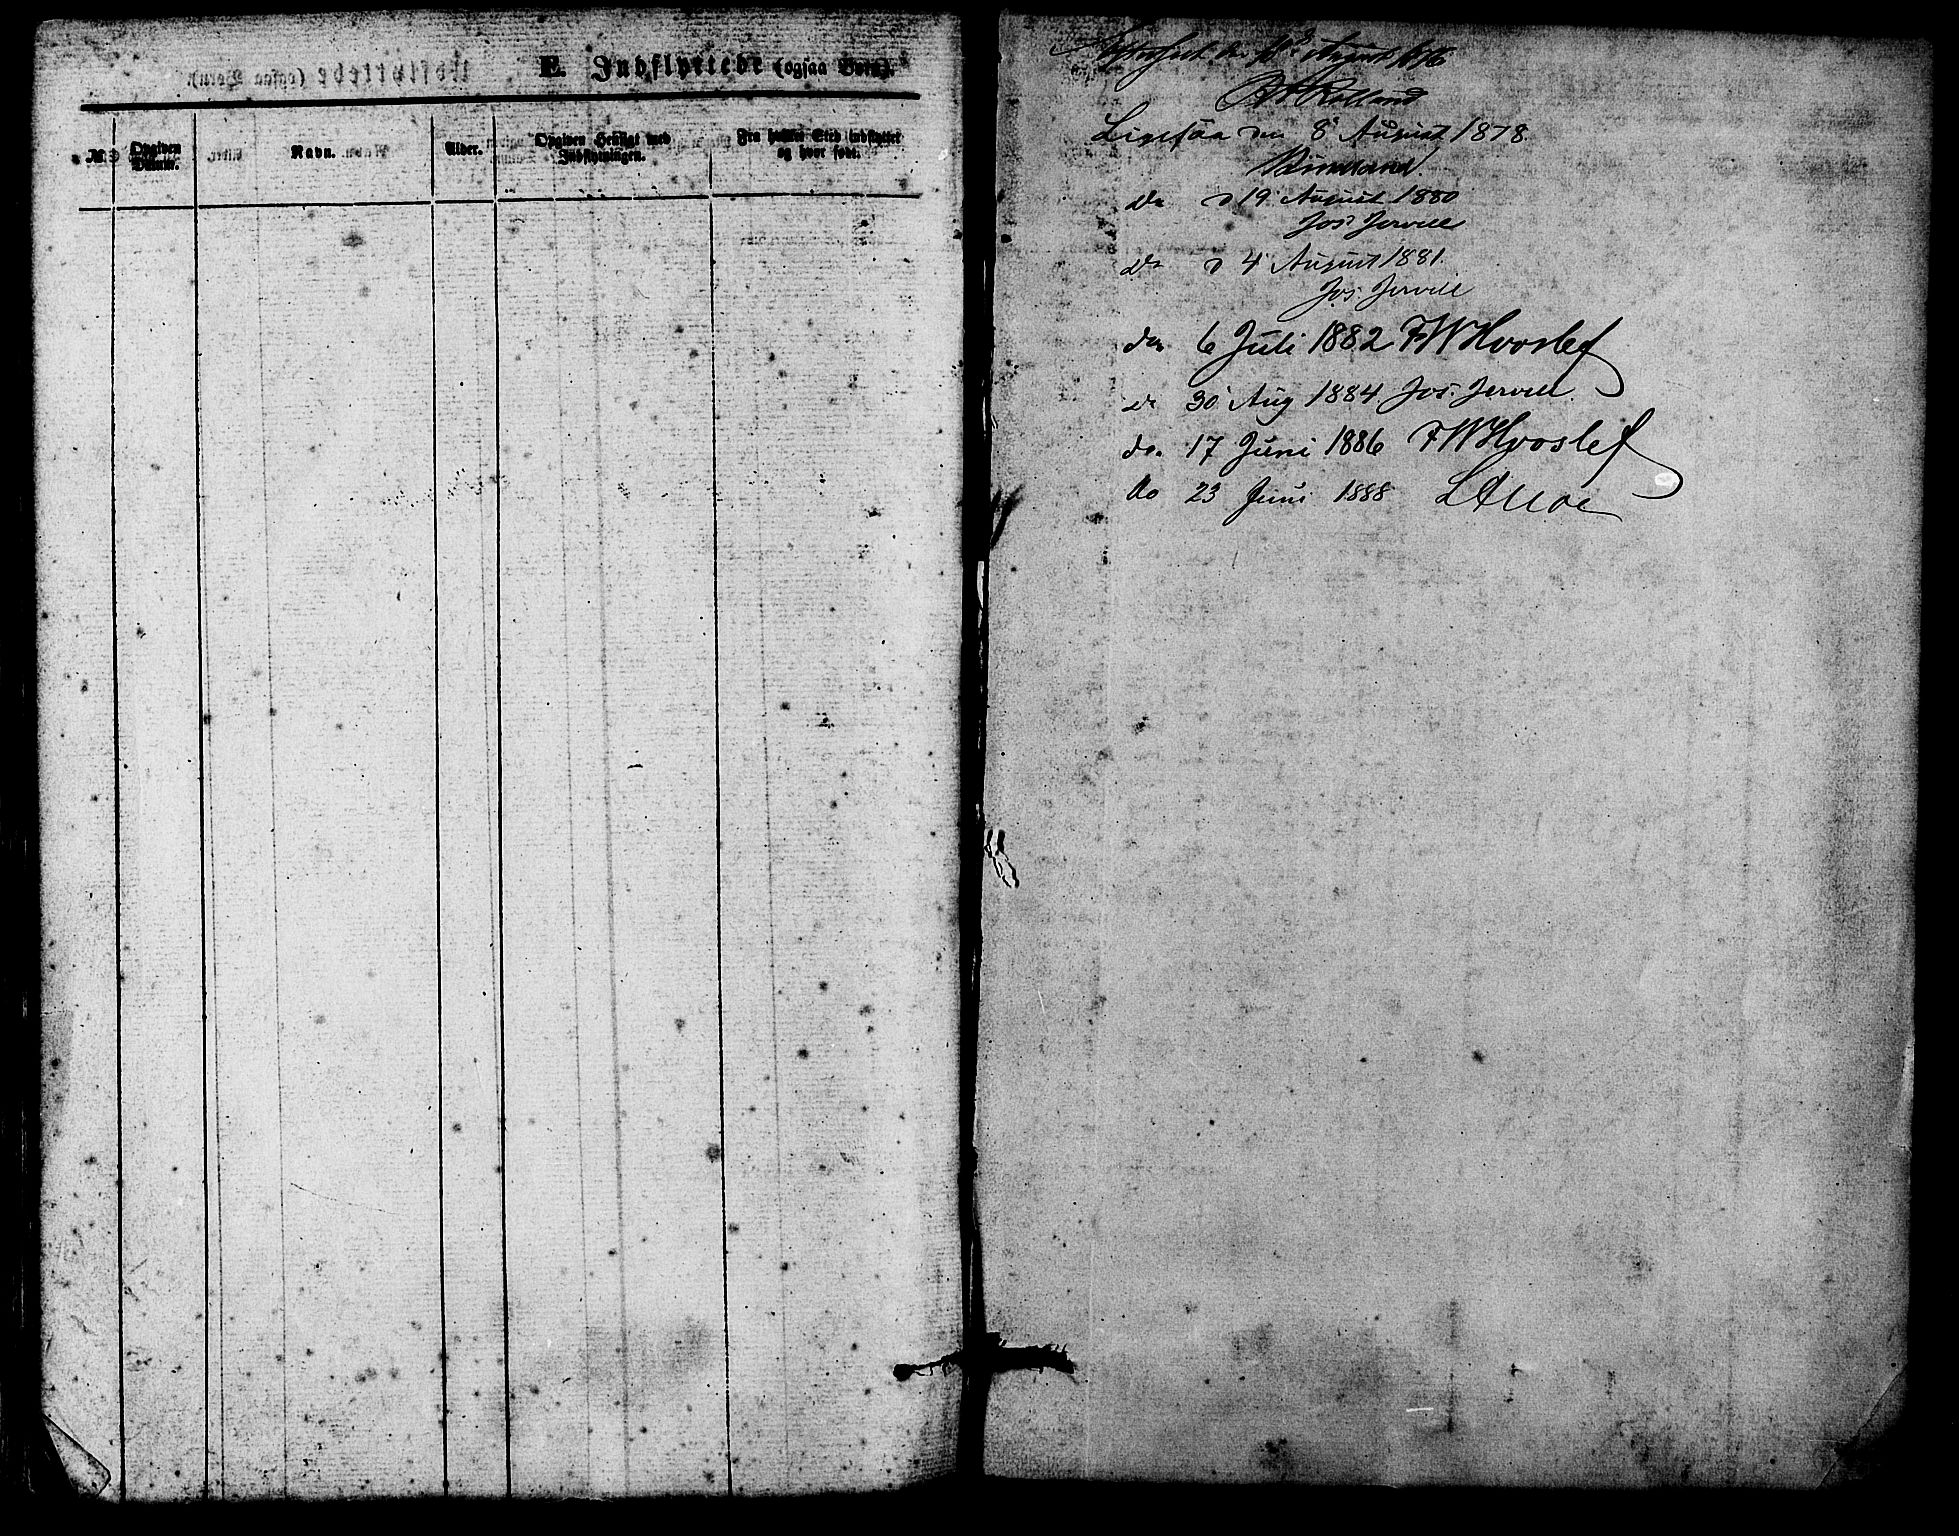 E. Indflyttede (ogsaa Børn).
№
Opgiven
Datum.
Navn.
Alder.
Opgiven Hensigt med
Indflytningen.
Fra hvilket Sted indflyttet
og hvor født.
August 1876
Rolland
Ligesaa den 8de August 1878
do d 19 August 1880
Jos. Jervell
do d 4 August 1881.
Jos. Jervell
do. 6 Juli 1882 F W Hvoslef
do 30 Aug 1884 Jos. Jervell.
do. 17 Juni 1886 F W Hvoslef
do 23 Juni 1888